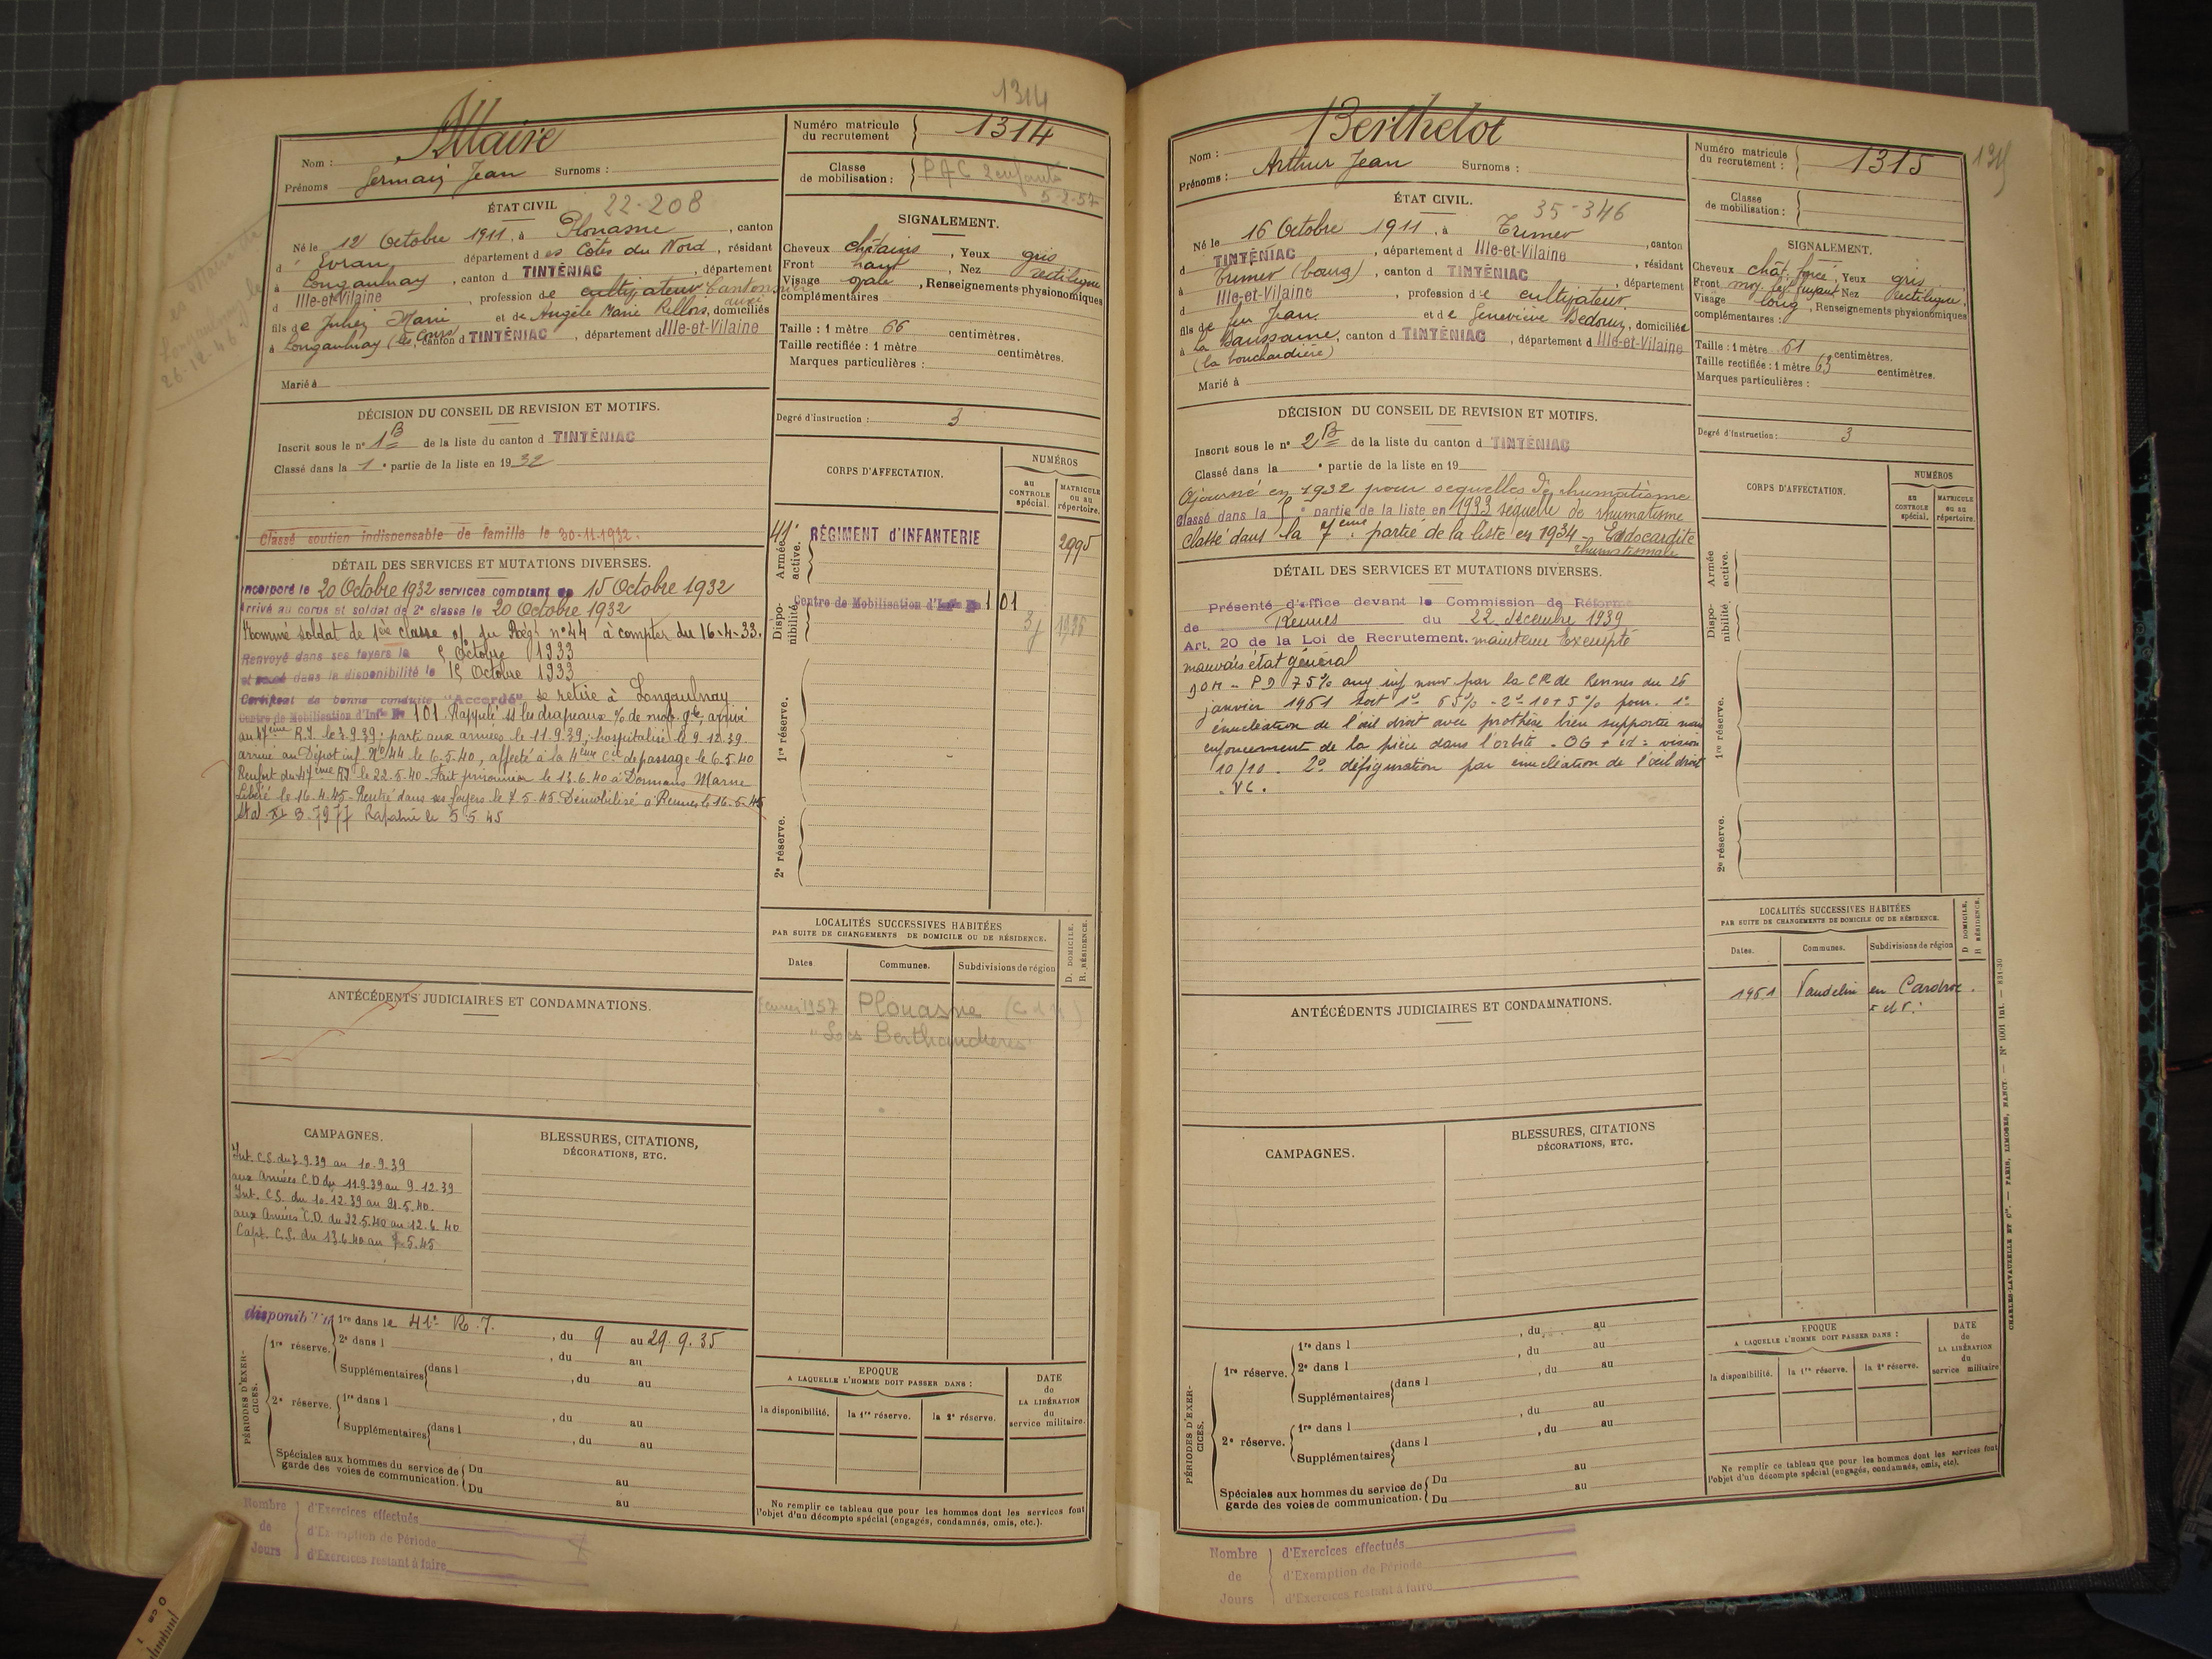 1314
Allaire
Nom :
Prénoms Germain Jean Surnoms :
Numéro matricule du recrutement 1314
Classe de mobilisation : PAC 2 enfants
5-2-57
ÉTAT CIVIL 22-208
Né le 12 Octobre 1911, à Plouasne, canton
d'Evran, département des Côtes du Nord, résidant
à Longaulnay, canton d TINTÉNIAC, département
d Ille-et-Vilaine, profession de cultivateur Cantonnier
fils de Julien Marie et de Angèle Marie Rellois, domiciliés
à Longaulnay, canton d TINTÉNIAC, département d Ille-et-Vilaine
Marié à
SIGNALEMENT.
Cheveux châtains, Yeux gris
Front haut, Nez rectiligne
Visage ovale, Renseignements physionomiques
complémentaires
Taille : 1 mètre 66 centimètres.
Taille rectifiée : 1 mètre centimètres.
Marques particulières :
Degré d'instruction : 3
26-12-46
DÉCISION DU CONSEIL DE REVISION ET MOTIFS.
Inscrit sous le n° 1 B de la liste du canton d TINTÉNIAC
Classé dans la 1e partie de la liste en 1932
Classé soutien indispensable de famille le 30-11-1932.
DÉTAIL DES SERVICES ET MUTATIONS DIVERSES.
Incorporé le 20 Octobre 1932 services comptant du 15 Octobre 1932
Arrivé au corps et soldat de 2e classe le 20 Octobre 1932
Nommé soldat de 1ère classe o/ du Régt n°44 à compter du 16-4-33.
Renvoyé dans ses foyers le Octobre 1933
et passé dans la disponibilité le 15 Octobre 1933
Certificat de bonne conduite "Accordé" se retire à Longaulnay
Centre de Mobilisation d'Inf'ie N° 101. Rappelé ss les drapeaux % de mob. gle, arrivé
au 47ème R.I. le 3.9.39; parti aux armées le 11.9.39; hospitalisé le 9.12.39
arrivé au Dépôt inf. N°44 le 6.5.40, affecté à la 4ème Cie de passage le 6.5.40
Renfort du 47ème RI le 22.5.40. Fait prisonnier le 13.6.40 à Dormans Marne
Libéré le 16.4.45 - Rentré dans ses foyers le 7.5.45. Démobilisé à Rennes le 16.5.45
Stal XI B. 7977 Rapatrié le 5 5 45
CORPS D'AFFECTATION.
NUMÉROS
au CONTROLE spécial.
MATRICULE ou au répertoire.
Armée active.
41e RÉGIMENT d'INFANTERIE 2995
Disponibilité.
Centre de Mobilisation d'Inf'ie N° 101
1re réserve.
2e réserve.
LOCALITÉS SUCCESSIVES HABITÉES
PAR SUITE DE CHANGEMENTS DE DOMICILE OU DE RÉSIDENCE.
Dates Communes. Subdivisions de région
D. DOMICILE. R. RÉSIDENCE.
février 1957 Plouasne (C d N)
"Les Berthaudières"
ANTÉCÉDENTS JUDICIAIRES ET CONDAMNATIONS.
CAMPAGNES.
Int. C.S. du 3.9.39 au 10.9.39
aux Armées C.D. du 11.9.39 au 9.12.39
Int. C.S. du 10.12.39 au 21.5.40.
aux Armées C.D. du 22.5.40 au 12.6.40
Capt. C.S. du 13.6.40 au 7.5.45
BLESSURES, CITATIONS,
DÉCORATIONS, ETC.
PÉRIODES D'EXERCICES.
disponibilité
1re réserve. 1re dans le 41e R.I., du 9 au 29.9.35
2e dans l , du au
Supplémentaires dans l , du au
2e réserve. 1re dans l , du au
Supplémentaires dans l , du au
Spéciales aux hommes du service de garde des voies de communication. Du au
Du au
EPOQUE
A LAQUELLE L'HOMME DOIT PASSER DANS :
la disponibilité. la 1re réserve. la 2e réserve.
DATE de LA LIBÉRATION du service militaire.
Ne remplir ce tableau que pour les hommes dont les services font
l'objet d'un décompte spécial (engagés, condamnés, omis, etc.).
Nombre de Jours
d'Exercices effectués
d'Exemption de Période
d'Exercices restant à faire
Berthelot
Nom :
Prénoms : Arthur Jean Surnoms :
Numéro matricule du recrutement : 1315
1315
Classe de mobilisation :
ÉTAT CIVIL. 35-346
Né le 16 Octobre 1911, à Trimer, canton
d TINTÉNIAC, département d Ille-et-Vilaine, résidant
à Trimer (bourg), canton d TINTÉNIAC, département
d Ille-et-Vilaine, profession de cultivateur
fils de feu Jean et de Geneviève Bedouin, domiciliée
à La Baussaine, canton d TINTÉNIAC, département d Ille-et-Vilaine
(la bouchardière)
Marié à
SIGNALEMENT.
Cheveux chât. foncé, Yeux gris
Front moy. lég. fuyant Nez rectiligne.
Visage long, Renseignements physionomiques
complémentaires :
Taille : 1 mètre 61 centimètres.
Taille rectifiée : 1 mètre 63 centimètres.
Marques particulières :
Degré d'instruction : 3
DÉCISION DU CONSEIL DE REVISION ET MOTIFS.
Inscrit sous le n° 2 B de la liste du canton d TINTÉNIAC
Classé dans la e partie de la liste en 19
Ajourné en 1932 pour sequelles de rhumatisme
Classé dans la e partie de la liste en 1933 séquelle de rhumatisme
Classé dans la 7ème partie de la liste en 1934 - Endocardite
rhumatismale
DÉTAIL DES SERVICES ET MUTATIONS DIVERSES.
Présenté d'office devant la Commission de Réforme
de Rennes du 22 décembre 1939
Art. 20 de la Loi de Recrutement. maintenu Exempté
mauvais état général
DOM - PD 75% aug inf nouv par la CR de Rennes du 26
janvier 1961 soit 1° 65% - 2° 10+5% pour. 1°
énucléation de l'œil droit avec prothèse bien supportée mais
enfoncement de la pièce dans l'orbite. OG = vision
10/10. 2° défiguration par énucléation de l'œil droit
- VC.
CORPS D'AFFECTATION.
NUMÉROS
au CONTROLE spécial.
MATRICULE ou au répertoire.
Armée active.
Disponibilité.
1re réserve.
2e réserve.
LOCALITÉS SUCCESSIVES HABITÉES
PAR SUITE DE CHANGEMENTS DE DOMICILE OU DE RÉSIDENCE.
Dates. Communes. Subdivisions de région
D DOMICILE. R RÉSIDENCE.
1961 Vaudelin en Cardroc.
ANTÉCÉDENTS JUDICIAIRES ET CONDAMNATIONS.
CAMPAGNES.
BLESSURES, CITATIONS
DÉCORATIONS, ETC.
PÉRIODES D'EXERCICES.
1re réserve. 1re dans l , du au
2e dans l , du au
Supplémentaires dans l , du au
2e réserve. 1re dans l , du au
Supplémentaires dans l , du au
Spéciales aux hommes du service de garde des voies de communication. Du au
Du au
EPOQUE
A LAQUELLE L'HOMME DOIT PASSER DANS :
la disponibilité. la 1re réserve. la 2e réserve.
DATE de LA LIBÉRATION du service militaire
Ne remplir ce tableau que pour les hommes dont les services font
l'objet d'un décompte spécial (engagés, condamnés, omis, etc).
Nombre de Jours
d'Exercices effectués
d'Exemption de Période
d'Exercices restant à faire
CHARLES-LAVAUZELLE ET Cie. — PARIS, LIMOGES, NANCY. — N° 1001 int. — 831-30
0 cm 1